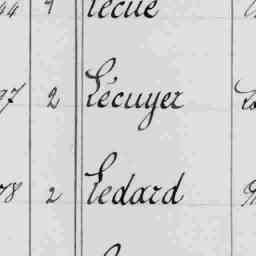 44 9 Lecue
97 2 Lécuyer
08 2 Ledard